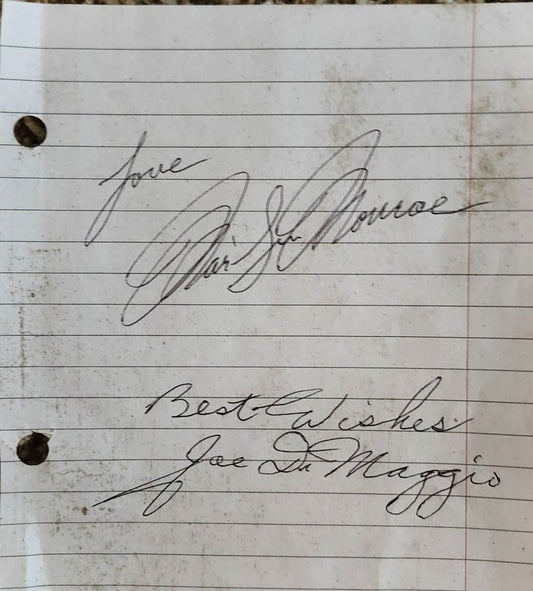 Love
Marilyn Monroe
Best Wishes
Joe Di Maggio